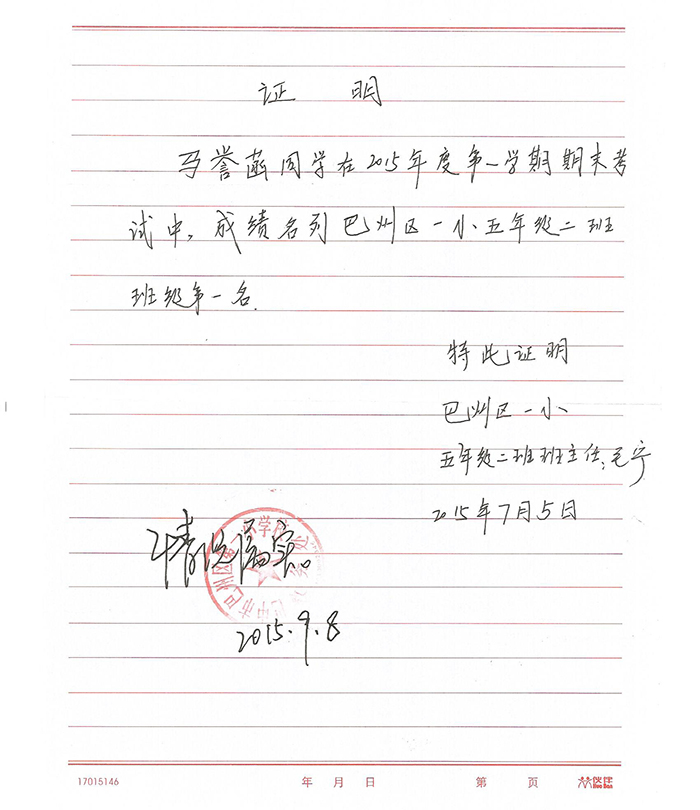 证 明
马誉菡同学在2015年度第一学期期末考
试中,成绩名列巴州区一小五年级二班
班级第一名.
特此证明
巴州区一小
五年级二班班主任:毛宁
2015年7月5日
情况属实。
2015.9.8
17015146 年 月 日 第 页